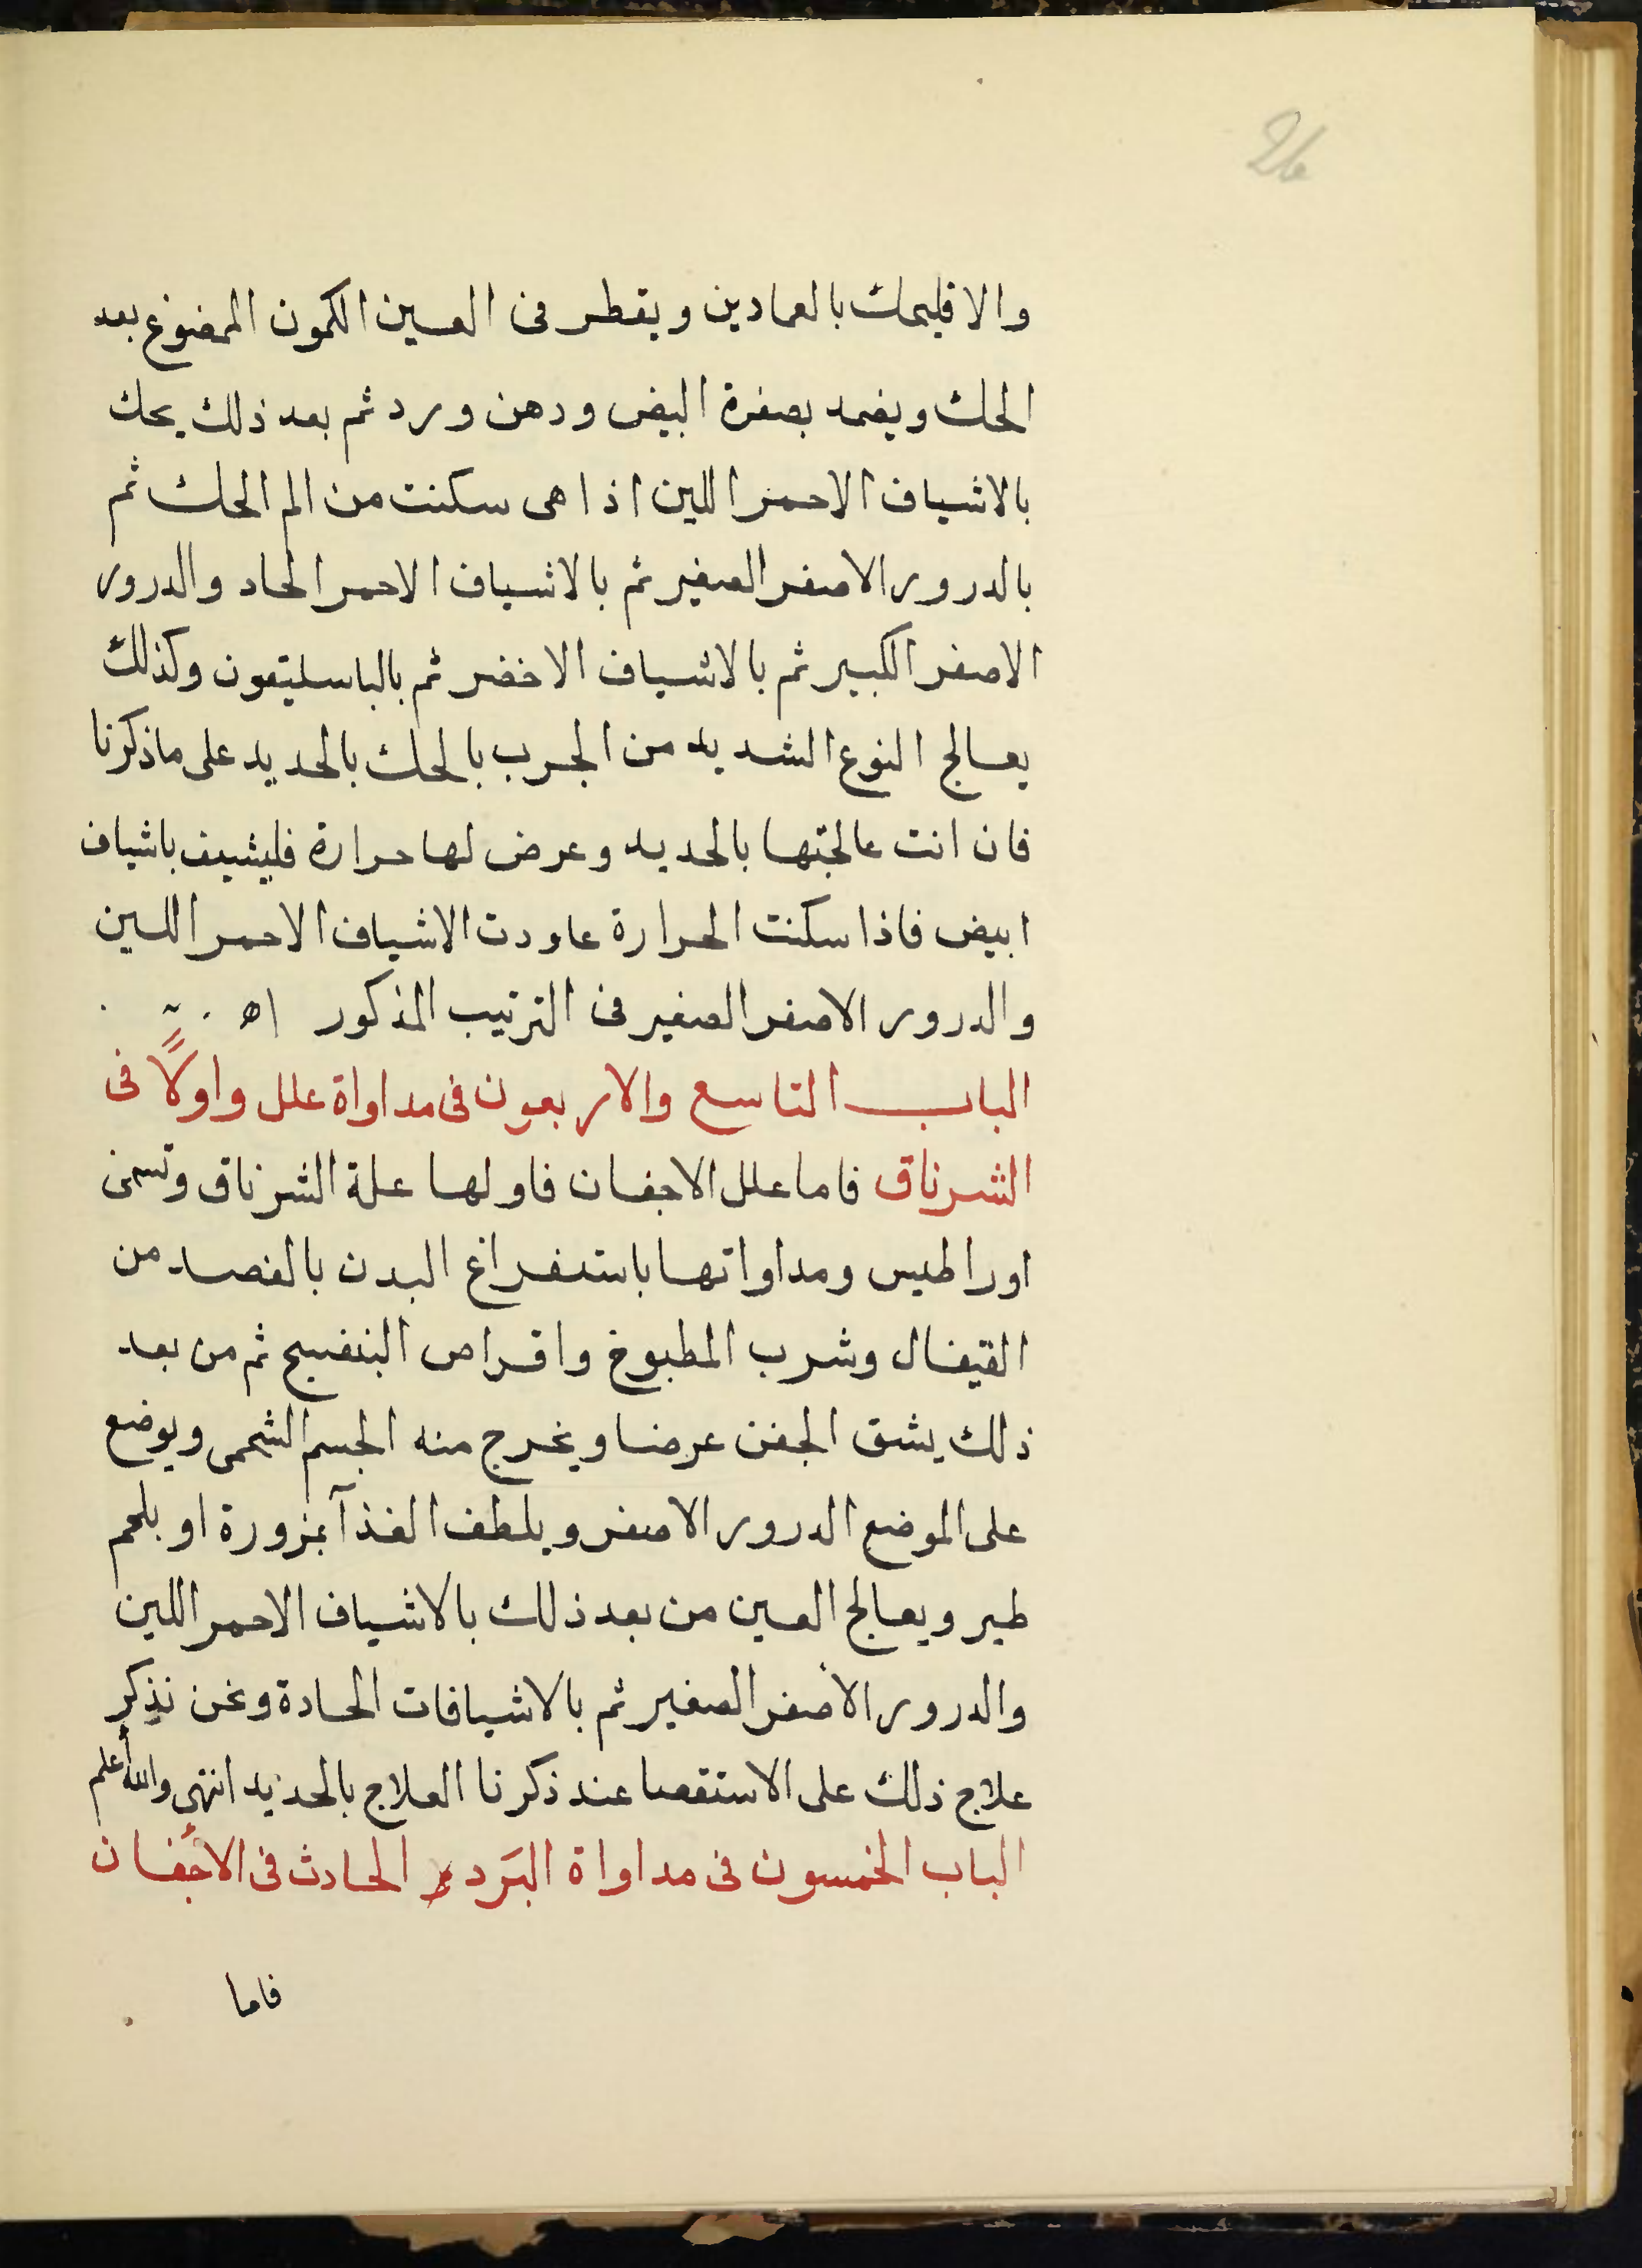 26
والا فليحك بالعمادين ويقطر فى العين الكمون الممضوغ بعد
الحك ويضمد بصفرة البيض ودهن ورد ثم بعد ذلك يحك
بالاشياف الاحمر اللين اذا هى سكنت من الم الحك ثم
بالدرور الاصفر الصغير ثم بالاشياف الاحمر الحاد والدرور
الاصفر الكبير ثم بالاشياف الاخضر ثم بالباسليقون وكذلك
يعالج النوع الشديد من الجرب بالحك بالحديد على ماذكرنا
فان انت عالجتها بالحديد وعرض لها حرارة فليشيف باشياف
ابيض فاذا سكنت الحرارة عاودت الاشياف الاحمر اللين
والدرور الاصفر الصغير فى الترتيب المذكور اه
الباب التاسع والاربعون فى مداواة علل واولاً فى
الشرناق فاما علل الاجفان فاولها علة الشرناق وتسمى
اوراطيس ومداواتها باستفراغ البدن بالفصد من
القيفال وشرب المطبوخ واقراص البنفسج ثم من بعد
ذلك يشق الجفن عرضا ويخرج منه الجسم الشحمى ويوضع
على الموضع الدرور الاصفر ويلطف الغذآ بمزورة او بلحم
طير ويعالج العين من بعد ذلك بالاشياف الاحمر اللين
والدرور الاصفر الصغير ثم بالاشيافات الحادة ونحن نذكر
علاج ذلك على الاستقصا عند ذكرنا العلاج بالحديد انتهى والله أعلم
الباب الخمسون فى مداواة البَرد الحادث فى الأجفان
فاما